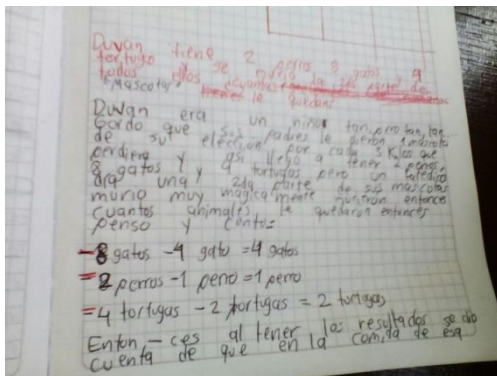 Duvan tiene 2 perros 8 gatos 4
tortugas y se murio la 2da parte de
todos ellos cuantas
mascotas le quedans
Duvan era un niño tan, pero tan, tan
Gordo que sus padres le dieron 1 mascota
de su eleccion por cada 3 kilos que
perdiera y asi llego a tener 2 perros
8 gatos y 4 tortugas pero un fatidico
dia una 2da parte de sus mascotas
murio muy magicamente murieron entonces
cuantos animales le quedaron entonces
penso y conto:
- 8 gatos - 4 gato = 4 gatos
= 2 perros - 1 perro = 1 perro
= 4 tortugas - 2 tortugas = 2 tortugas
Enton-ces al tener los resultados se dio
cuenta de que en la comida de esa